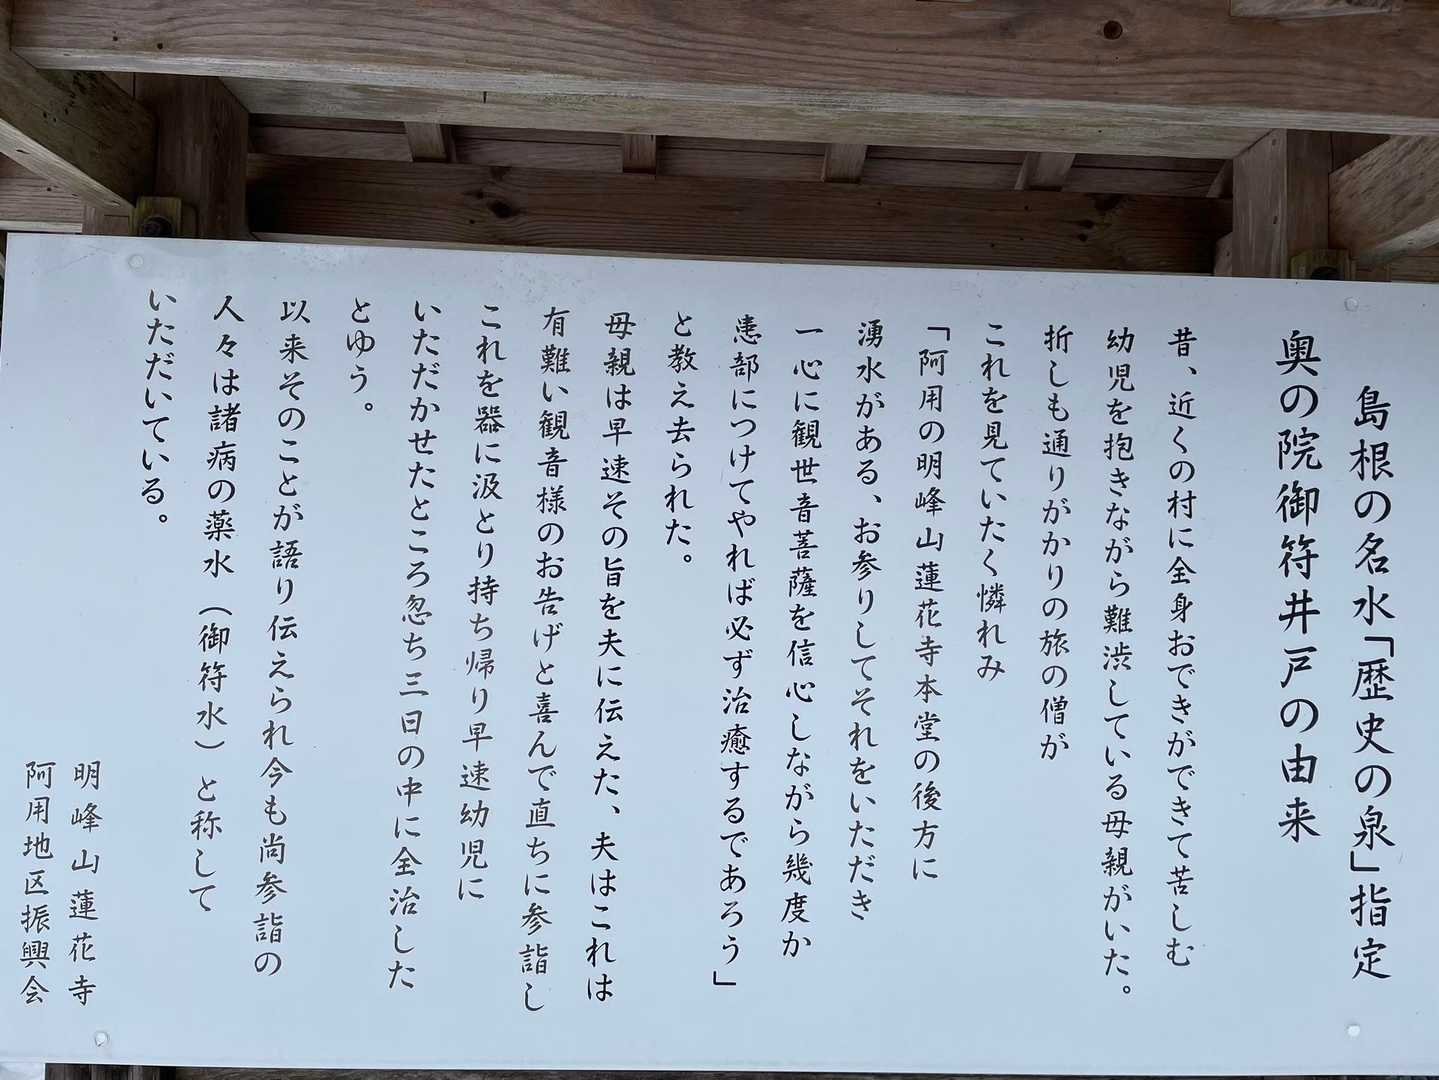 島根の名水「歴史の泉」指定
奥の院御符井戸の由来
昔、近くの村に全身おできができて苦しむ
幼児を抱きながら難渋している母親がいた。
折しも通りがかりの旅の僧が
これを見ていたく憐れみ
「阿用の明峰山蓮花寺本堂の後方に
湧水がある、お参りしてそれをいただき
一心に観世音菩薩を信心しながら幾度か
患部につけてやれば必ず治癒するであろう」
と教え去られた。
母親は早速その旨を夫に伝えた、夫はこれは
有難い観音様のお告げと喜んで直ちに参詣し
これを器に汲とり持ち帰り早速幼児に
いただかせたところ忽ち三日の中に全治した
とゆう。
以来そのことが語り伝えられ今も尚参詣の
人々は諸病の薬水（御符水）と称して
いただいている。
明峰山蓮花寺
阿用地区振興会